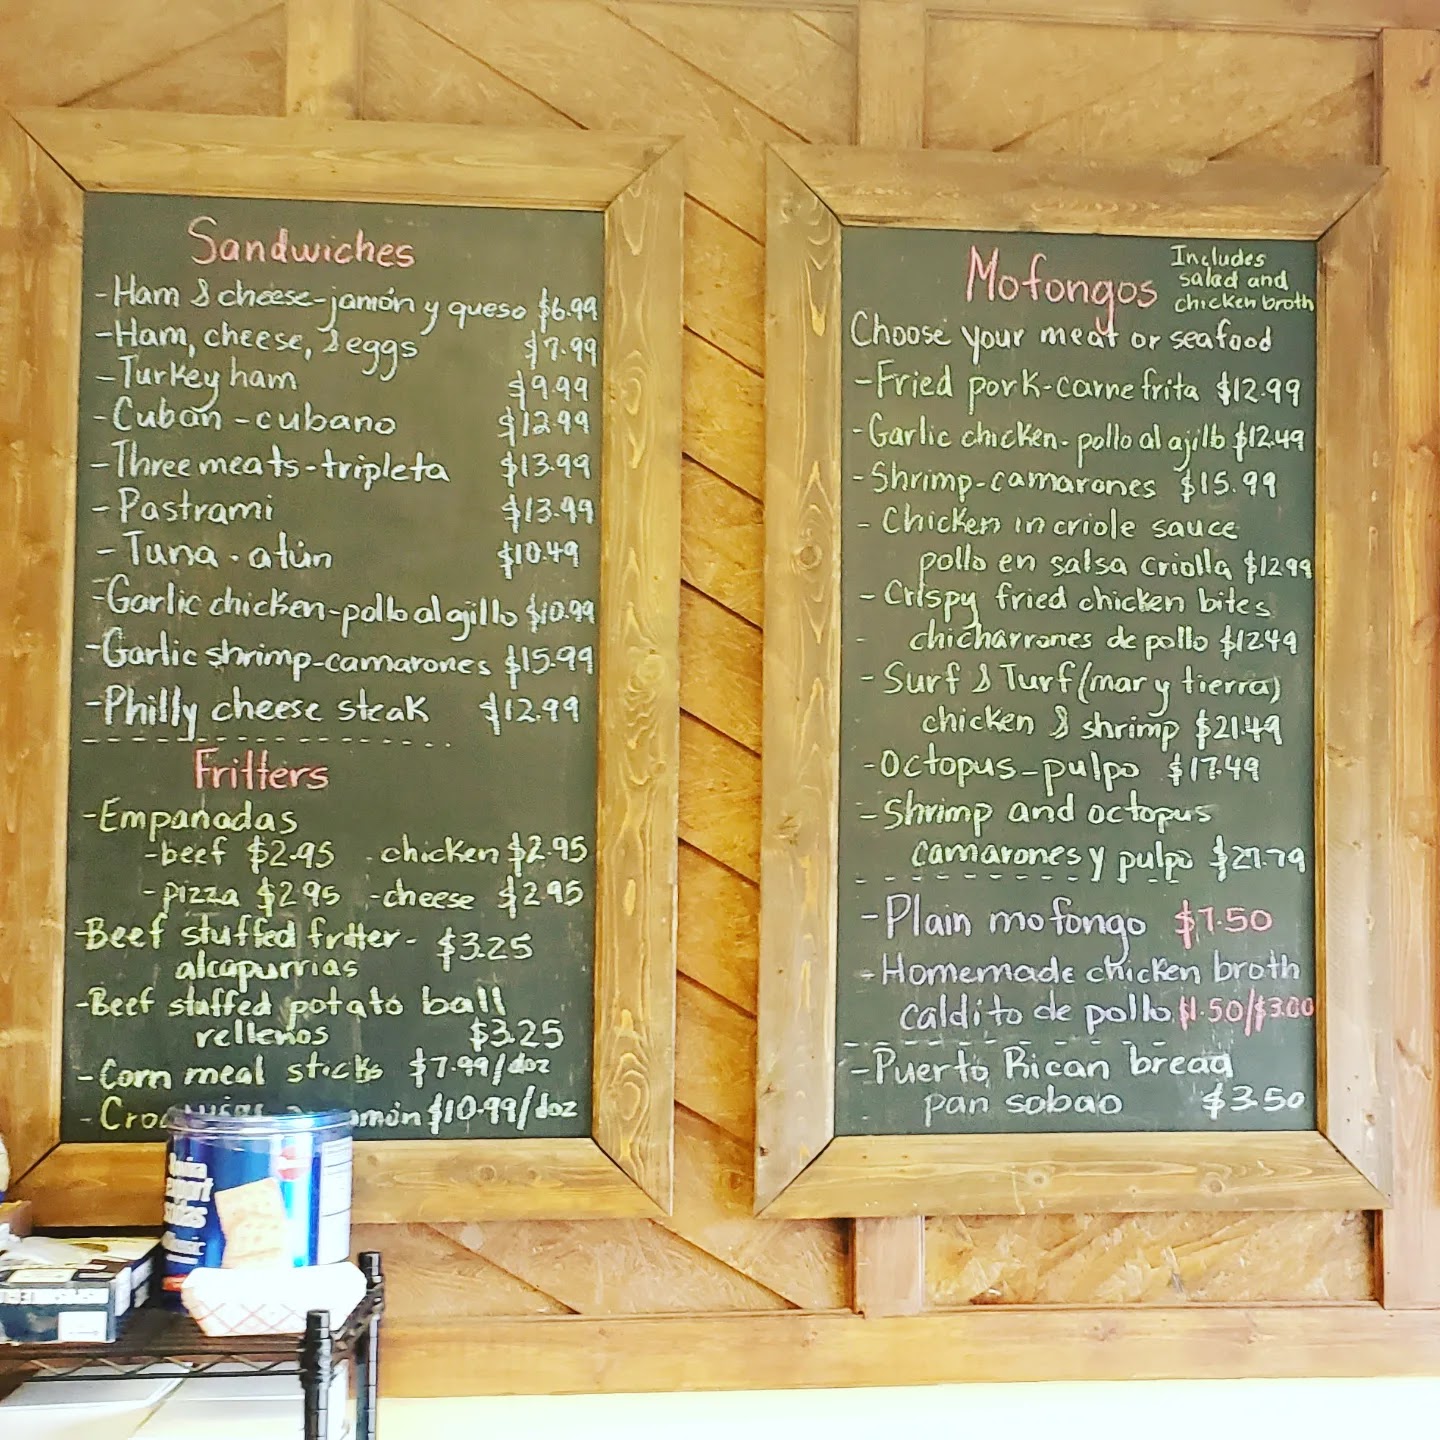 Sandwiches
- Ham & cheese - jamón y queso $6.99
- Ham, cheese, & eggs $7.99
- Turkey ham $9.99
- Cuban - cubano $12.99
- Three meats - tripleta $13.99
- Pastrami $13.99
- Tuna - atún $10.49
- Garlic chicken - pollo al ajillo $10.99
- Garlic shrimp - camarones $15.99
- Philly cheese steak $12.99
Fritters
- Empanadas
- beef $2.95 - chicken $2.95
- pizza $2.95 - cheese $2.95
- Beef stuffed fritter - $3.25
alcapurrias
- Beef stuffed potato ball
rellenos $3.25
- Corn meal sticks $7.99/doz
$10.99/doz
Mofongos
Includes
salad and
chicken broth
Choose your meat or seafood
- Fried pork - carne frita $12.99
- Garlic chicken - pollo al ajillo $12.49
- Shrimp - camarones $15.99
- Chicken in criole sauce
pollo en salsa criolla $12.99
- Crispy fried chicken bites
- chicharrones de pollo $12.49
- Surf & Turf (mar y tierra)
chicken & shrimp $21.49
- Octopus - pulpo $17.49
- Shrimp and octopus
camarones y pulpo
- Plain mofongo $7.50
- Homemade chicken broth
caldito de pollo $1.50/$3.00
- Puerto Rican bread
pan sobao $3.50